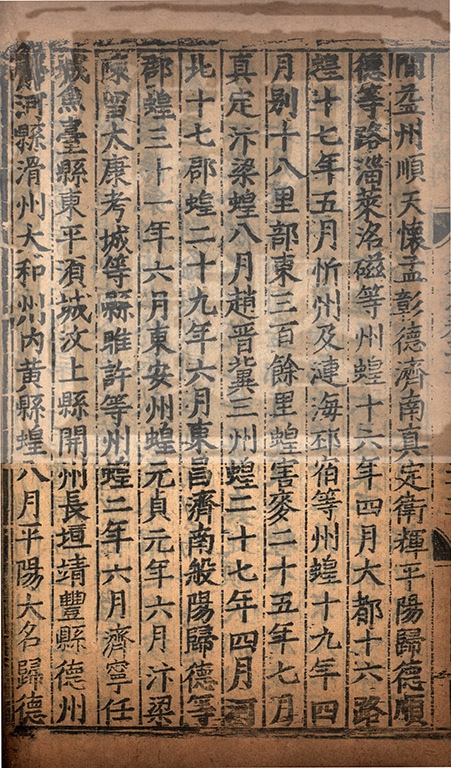 間益州順天懷孟彰德濟南真定衛輝平陽歸德順
德等路淄萊洛磁等州蝗十六年四月大都十六路
蝗十七年五月忻州及漣海邳宿等州蝗十九年四
月別十八里部東三百餘里蝗害麥二十五年七月
真定汴梁蝗八月趙晉冀三州蝗二十七年四月河
北十七郡蝗二十九年六月東昌濟南般陽歸德等
郡蝗三十一年六月東安州蝗元貞元年六月汴梁
陳留太康考城等縣睢許等州蝗二年六月濟寧任
城魚臺縣東平須城汶上縣開州長垣靖豐縣德州
齊河縣滑州大和州内黃縣蝗八月平陽大名歸德